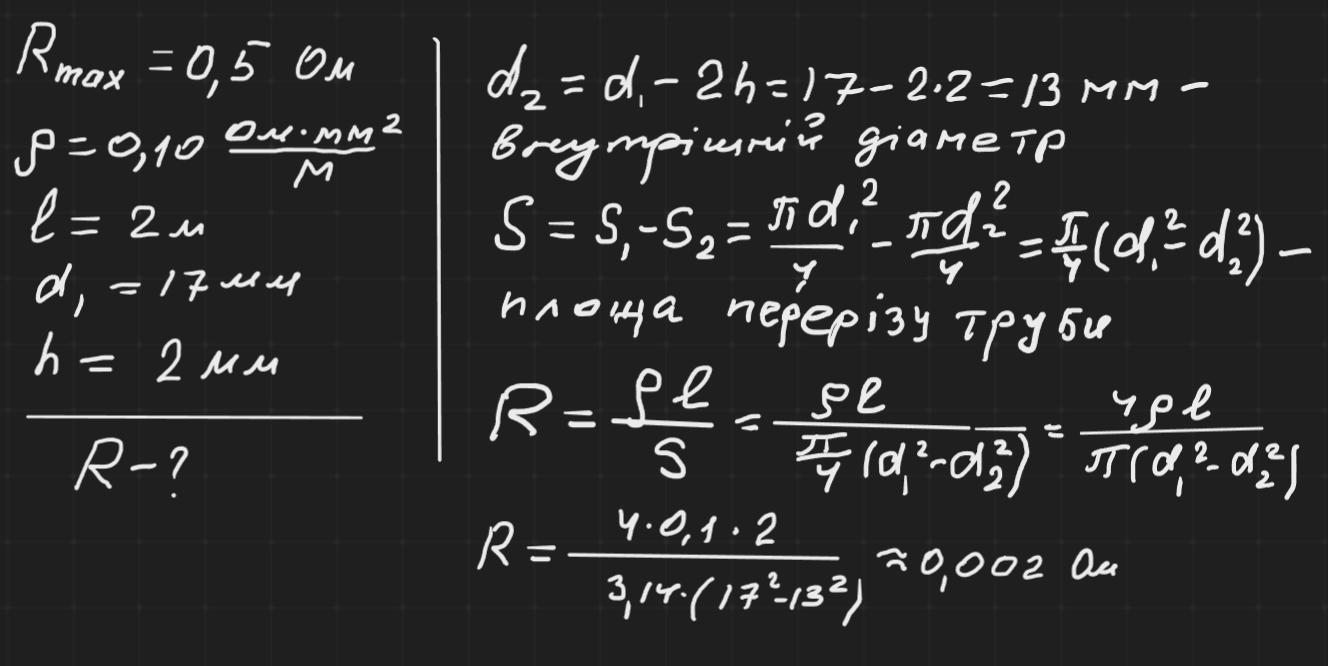 R_max = 0,5 Ом
ρ = 0,10 Ом·мм²/м
l = 2 м
d₁ = 17 мм
h = 2 мм
R - ?
d₂ = d₁ - 2h = 17 - 2·2 = 13 мм -
внутрішній діаметр
S = S₁ - S₂ = πd₁²/4 - πd₂²/4 = π/4 (d₁² - d₂²) -
площа перерізу труби
R = ρl/S = ρl/(π/4 (d₁² - d₂²)) = 4ρl/(π(d₁² - d₂²))
R = 4·0,1·2/(3,14·(17² - 13²)) ≈ 0,002 Ом